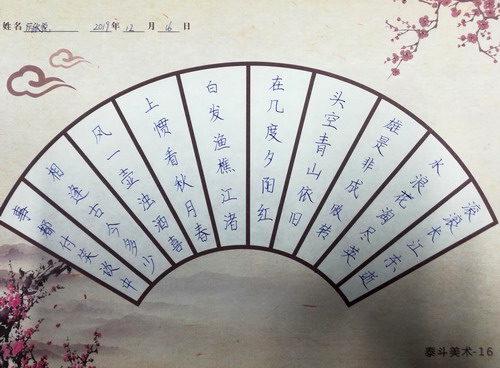 姓名 2019年12月16日
滚滚长江东逝
水浪花淘尽英
雄是非成败转
头空青山依旧
在几度夕阳红
白发渔樵江渚
上惯看秋月春
风一壶浊酒喜
相逢古今多少
事都付笑谈中
泰斗美术-16